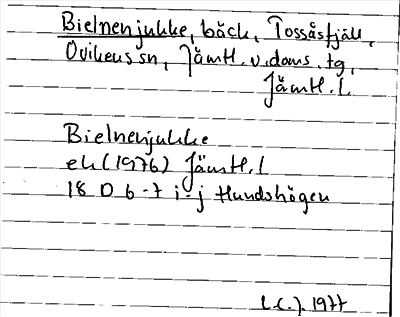 Bielnenjukke, bäck, Tossåsfjäll,
Ovikens sn, Jämtl. v. doms. tg,
Jämtl. l.
Bielnenjukke
ek (1976) Jämtl. l
18 D 6-7 i-j Hundshögen
L.C.J. 1977